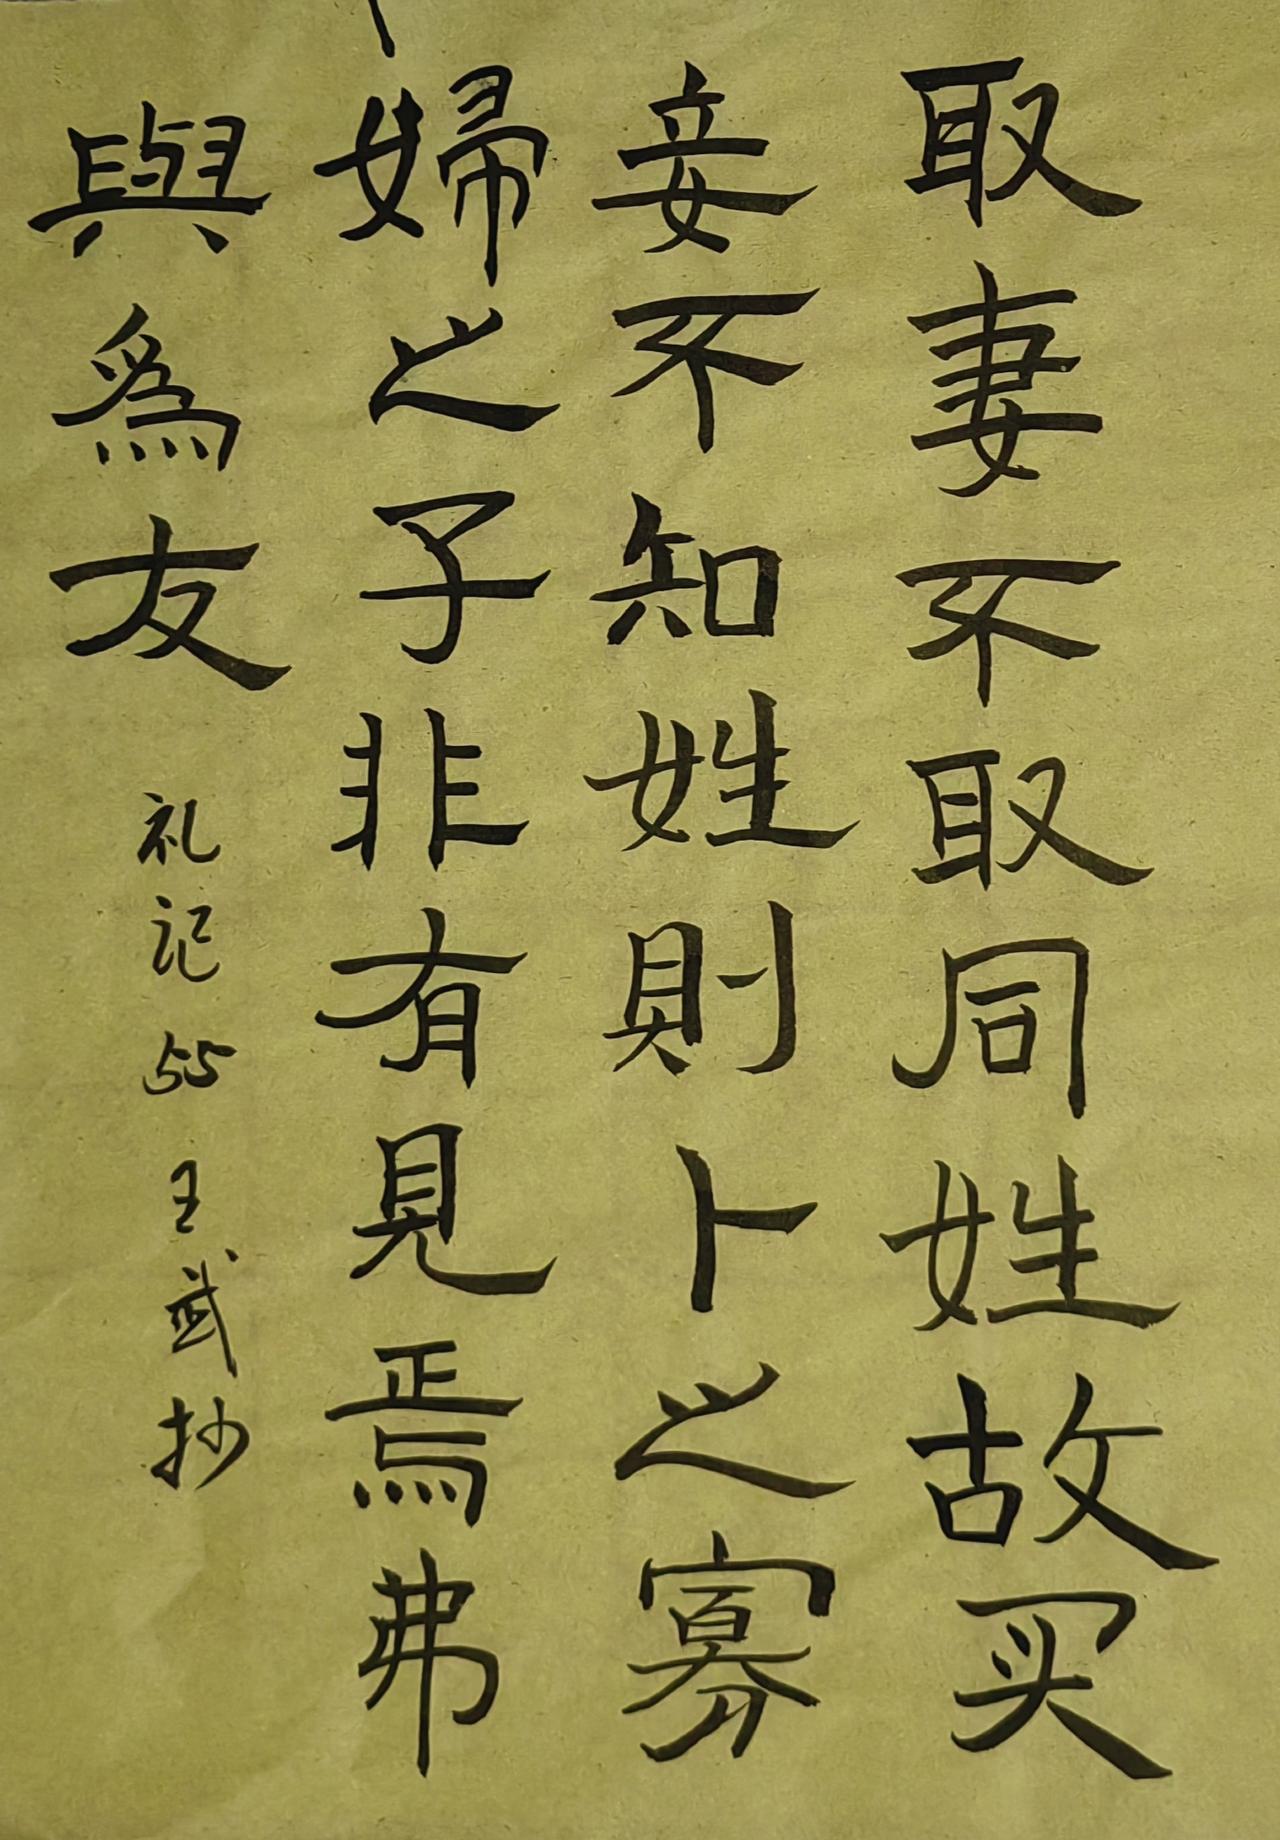 取妻不取同姓故买
妾不知姓則卜之寡
婦之子非有見焉弗
與爲友
礼记 55 王武抄